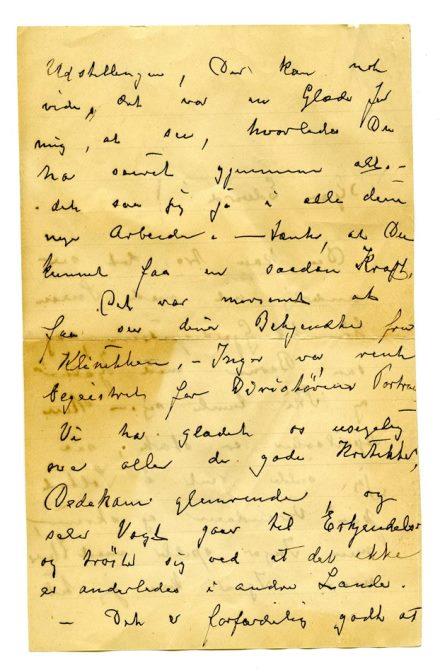 Udstillingen, Du kan nok
vide, det var en Glæde for
mig, at see, hvorledes Du
har seiret gjennem alt. –
– det saa jeg jo i alle dine
nye Arbeider. – tænk, at Du
kunnet faa en saadan Kraft.
Det var morsomt at
faa see dine Bekjendte fra
Klinikken, – Inger var rent
begeistret for Direktørens Portræt
Vi har glædet os usigelig
over alle de gode Kritikker,
Dedekam glimrende, og
selv Vogt gaar til Erkjendelse
og trøster sig ved at det ikke
er anderledes i andre Lande.
– Det er forfærdelig godt at